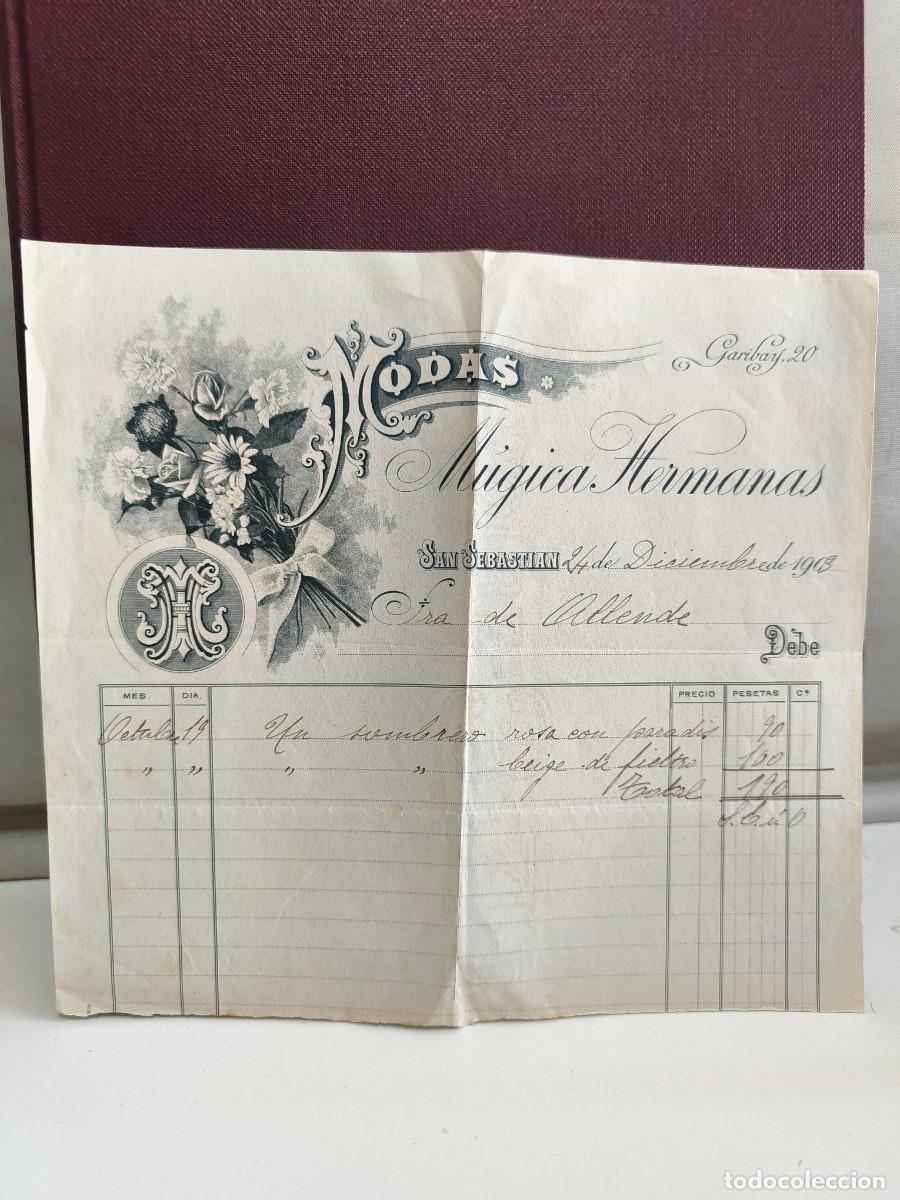 MODAS.
Garibay, 20
Múgica Hermanas
SAN SEBASTIAN 24 de Diciembre de 1913
Sra de Allende
Debe
MES. DIA. PRECIO PESETAS Cs
Octubre 19 Un sombrero rosa con paradis 90
" " " " beige de fieltro 100
Total 190
S. E. ú O
todocoleccion